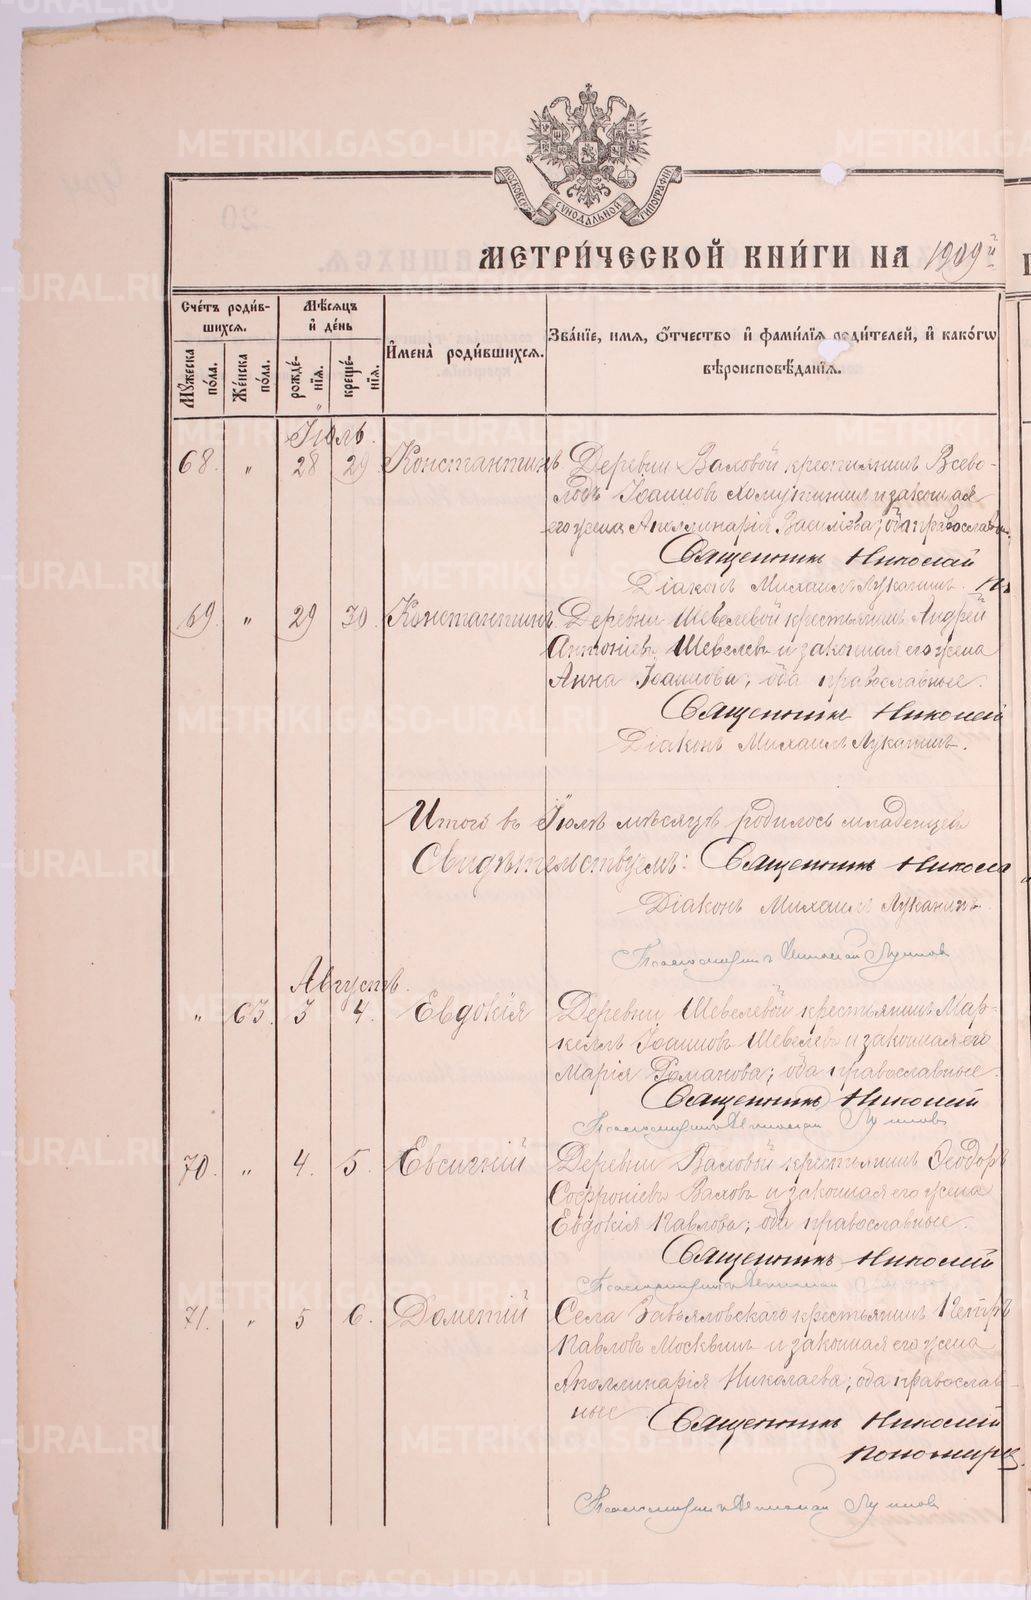 МОСКОВСКОЙ СѴНОДАЛЬНОЙ ТИПОГРАФІИ
МЕТРИ́ЧЕСКОЙ КНИ́ГИ НА 1909й
Сче́тъ роди́в-
шихсѧ.
Мѣ́сѧцъ
и҆ де́нь
И҆мена̀ роди́вшихсѧ.
Зва́нїе, имѧ, ѻ҆́тчество и҆ фами́лїѧ роди́телей, и҆ како́гѡ
вѣроисповѣ́данїѧ.
Мꙋ́жеска по́ла.
Же́нска по́ла.
рожде́-
нїѧ.
креще́-
нїѧ.
Іюль.
68. " 28 29. Константинъ Деревни Валовой крестьянинъ Всево-
лодъ Іоанновъ Хомутининъ и законная
его жена Аполлинарія Васильева; оба православн.
Священникъ Николай
Діаконъ Михаилъ Луканинъ.
69. " 29 30. Константинъ. Деревни Шевелевой крестьянинъ Андрей
Антоніевъ Шевелевъ и законная его жена
Анна Іоаннова; оба православные.
Священникъ Николай
Діаконъ Михаилъ Луканинъ.
Итого въ Іюлѣ мѣсяцѣ родилось младенцевъ
Свидѣтельствуемъ: Священникъ Никола
Діаконъ Михаилъ Луканинъ.
Псаломщикъ
Августъ.
" 63. 3 4. Евдокія Деревни Шевелевой крестьянинъ Мар-
келлъ Іоанновъ Шевелевъ и законная его
Марія Романова; оба православные.
Священникъ Николай
Псаломщикъ
70. " 4. 5. Евсигній Деревни Валовой крестьянинъ Ѳеодоръ
Софроніевъ Валовъ и законная его жена
Евдокія Павлова; оба православные.
Священникъ Николай
Псаломщикъ
71. " 5 6. Дометій Села Завьяловскаго крестьянинъ Петръ
Павловъ Москвинъ и законная его жена
Аполлинарія Николаева; оба православ-
ные Священникъ Николай
Пономарев
Псаломщикъ
METRIKI.GASO-URAL.RU